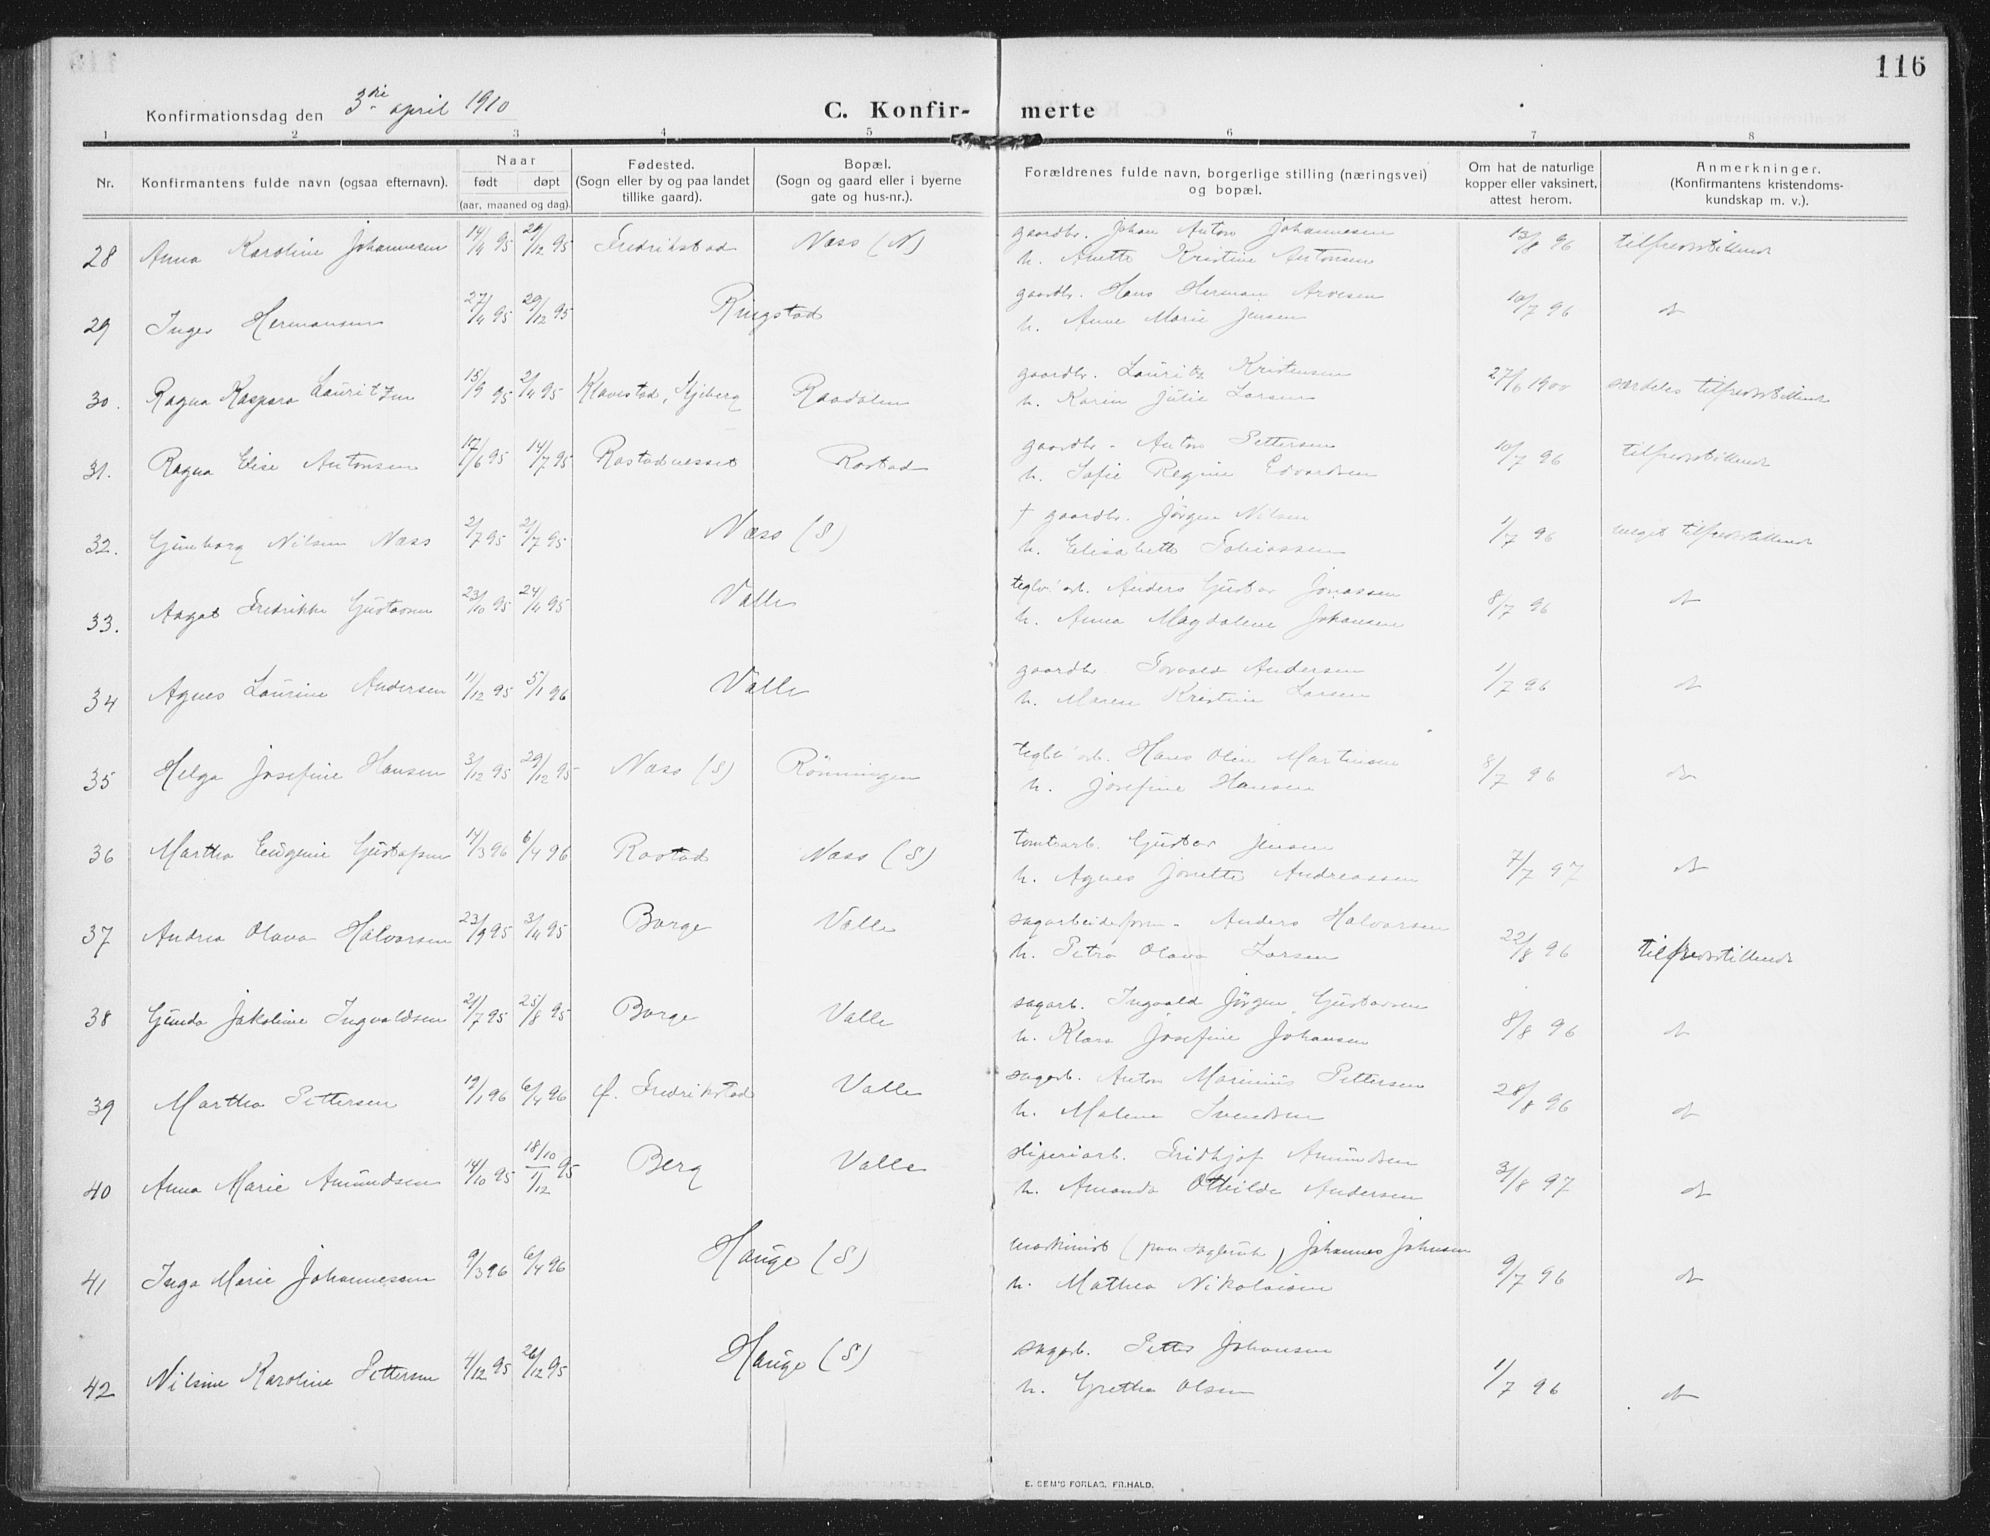 116
Konfirmationsdag den 3die april 1910
C. Konfir- merte
1 2 3 4 5 6 7 8
Nr. Konfirmantens fulde navn (ogsaa efternavn). Naar født døpt (aar, maaned og dag). Fødested. (Sogn eller by og paa landet tillike gaard). Bopæl. (Sogn og gaard eller i byerne gate og hus-nr.). Forældrenes fulde navn, borgerlige stilling (næringsvei) og bopæl. Om hat de naturlige kopper eller vaksinert, attest herom. Anmerkninger. (Konfirmantens kristendoms- kundskap m. v.).
28 Anna Karoline Johannesen 14/4 95 29/12 95 Fredrikstad Næss (N) gaardbr. Johan Anton Johannesen 13/8 96 tilfredsstillende
h. Anette Kristine Antonsen
29 Inger Hermansen 27/4 95 29/12 95 Ringstad gaardbr. Hans Herman Arvesen 10/7 96 do
h. Anne Marie Jensen
30. Ragna Kaspara Lauritzen 15/9 95 2/4 95 Klavestad, Skjeberg Raadalen gaardbr. Lauritz Kristensen 27/6 1900 særdeles tilfredsstillende
h. Karin Julie Larsen
31. Ragna Elise Antonsen 17/6 95 14/7 95 Rostadnesset Rostad gaardbr. Anton Pettersen 10/7 96 tilfredsstillende
h. Sofie Regine Edvardsen
32. Gunborg Nilsen Næss 2/7 95 21/7 95 Næss (S) † gaardbr. Jörgen Nilsen 1/7 96 meget tilfredsstillende
h. Elisabeth Tobiassen
33. Aagot Fredrikke Gustavsen 23/10 95 24/11 95 Valle teglv.arb. Anders Gustav Jonassen 8/7 96 do
h. Anna Magdalene Johansen
34 Agnes Laurine Andersen 11/12 95 5/1 96 Valle gaardbr. Torvald Andersen 1/7 96 do
h. Maren Kristine Larsen
35 Helga Josefine Hansen 3/12 95 29/12 95 Næss (S) Rönningen teglv.arb. Hans Olin Martinsen 8/7 96 do
h. Josefine Hansen
36 Martha Eugenie Gustafsen 14/3 96 6/4 96 Rostad Næss (S) tomtearb. Gustav Jensen 7/7 97 do
h. Agnes Jonette Andreassen
37 Andrea Olava Halvorsen 23/9 95 3/11 95 Borge Valle sagarbeiderform. Anders Halvorsen 22/8 96 tilfredsstillende
h. Petra Olava Larsen
38 Gunda Jakobine Ingvaldsen 21/7 95 25/8 95 Borge Valle sagarb. Ingvald Jörgen Gustavsen 8/8 96 do
h. Klara Josefine Johansen
39 Martha Pettersen 19/1 96 6/4 96 Ø. Fredrikstad Valle sagarb. Anton Marinius Pettersen 28/8 96 do
h. Malene Svendsen
40 Anna Marie Amundsen 14/10 95 18/10 1/12 95 Berg Valle sliperiarb. Fridthjof Amundsen 31/8 97 do
h. Amanda Othilde Andersen
41 Inga Marie Johannessen 9/3 96 6/4 96 Hauge (S) maskinist (paa sagbruk) Johannes Johnsen 9/7 96 do
h. Mathea Nikolaisen
42 Nilsine Karoline Pettersen 4/12 95 26/12 95 Hauge (S) sagarb. Petter Johansen 1/7 96 do
h. Grethe Olsen
E. SEM'S FORLAG, FR.HALD.